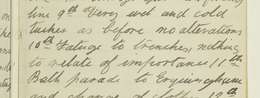 line 9th Very wet and cold
tushes as before no alterations
10th Fatigue to trenches nothing
to relate of importance 11th
Bath parade to
and change of 12th